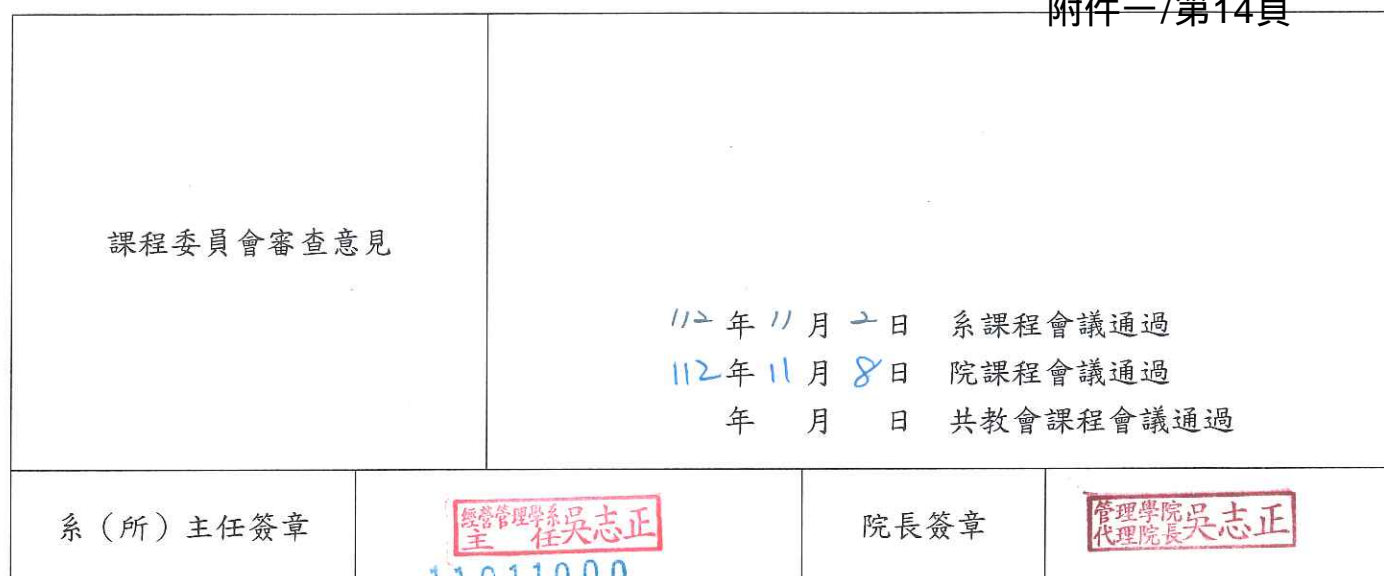 附件一/第14頁
課程委員會審查意見
112年11月2日 系課程會議通過
112年11月8日 院課程會議通過
年 月 日 共教會課程會議通過
系（所）主任簽章
經營管理學系
主任
吳志正
院長簽章
管理學院
代理院長
吳志正